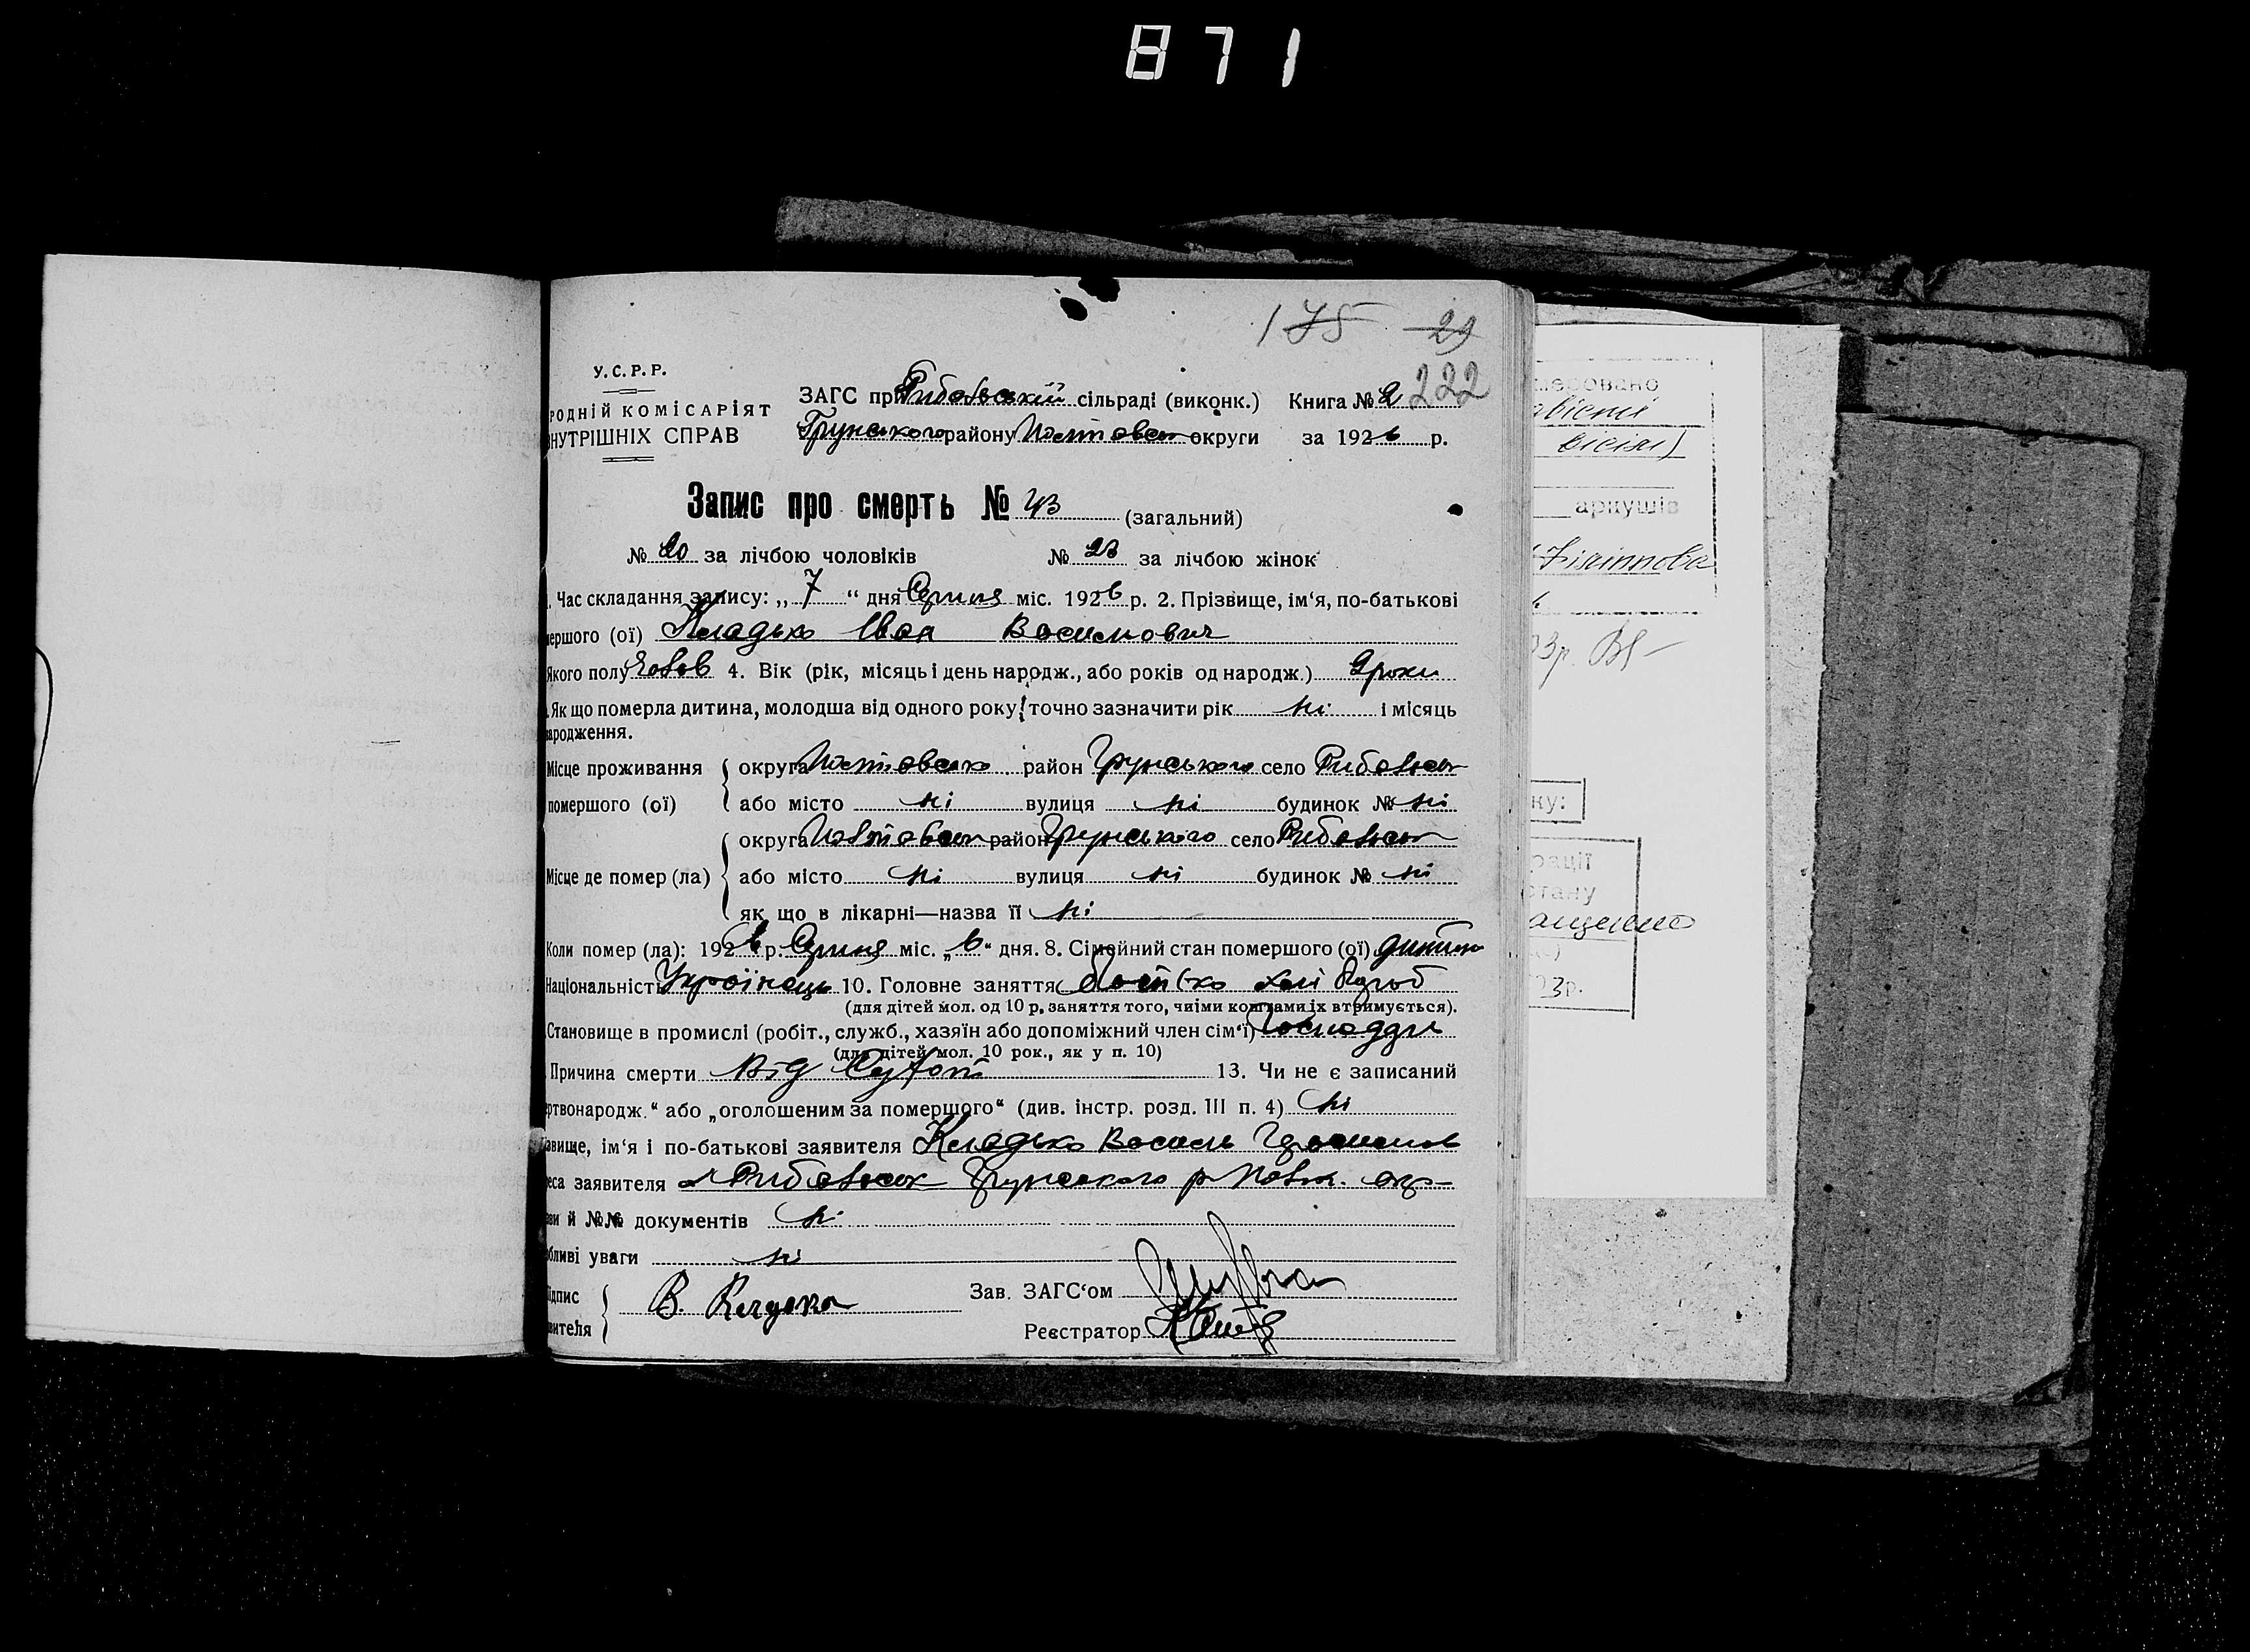 871
175 29
У.С.Р.Р.
ЗАГС при Рибальский сільраді (виконк.) Книга № 2 222
РОДНІЙ КОМІСАРІЯТ
Грунського району Полтавськ округи за 1926 р.
НУТРІШНІХ СПРАВ
Запис про смерть № 43 (загальний)
№ 20 за лічбою чоловіків № 23 за лічбою жінок
Час складання запису: „7“ дня Серпня міс. 1926 р. 2. Прізвище, ім‘я, по-батькові
мершого (ої) Кладько Іван Васильович
Якого полу Чолов 4. Вік (рік, місяць і день народж., або років од народж.) 2 роки
Як що померла дитина, молодша від одного року, точно зазначити рік ні і місяць
ародження.
Місце проживання округа Полтавсько район Грунського село Рибальськ
помершого (ої) або місто ні вулиця ні будинок № ні
округа Полтавськ район Грунського село Рибальськ
Місце де помер (ла) або місто ні вулиця ні будинок № ні
як що в лікарні—назва її ні
Коли помер (ла): 1926 р. Серпня міс. „6“ дня. 8. Сімейний стан помершого (ої) дитина
Національність Українець 10. Головне заняття
(для дітей мол. од 10 р. заняття того, чиїми коштами їх втримується).
Становище в промислі (робіт., служб., хазяїн або допоміжний член сім‘ї)
(для дітей мол. 10 рок., як у п. 10)
Причина смерти Від 13. Чи не є записаний
ртвонародж.“ або „оголошеним за помершого“ (див. інстр. розд. III п. 4) ні
звище, ім‘я і по-батькові заявителя Кладько Василь
еса заявителя Рибальськ Грунського р Полт. окр
ви й №№ документів ні
бливі уваги ні
ідпис В. Кладько Зав. ЗАГС‘ом
вителя Реєстратор
аркушів